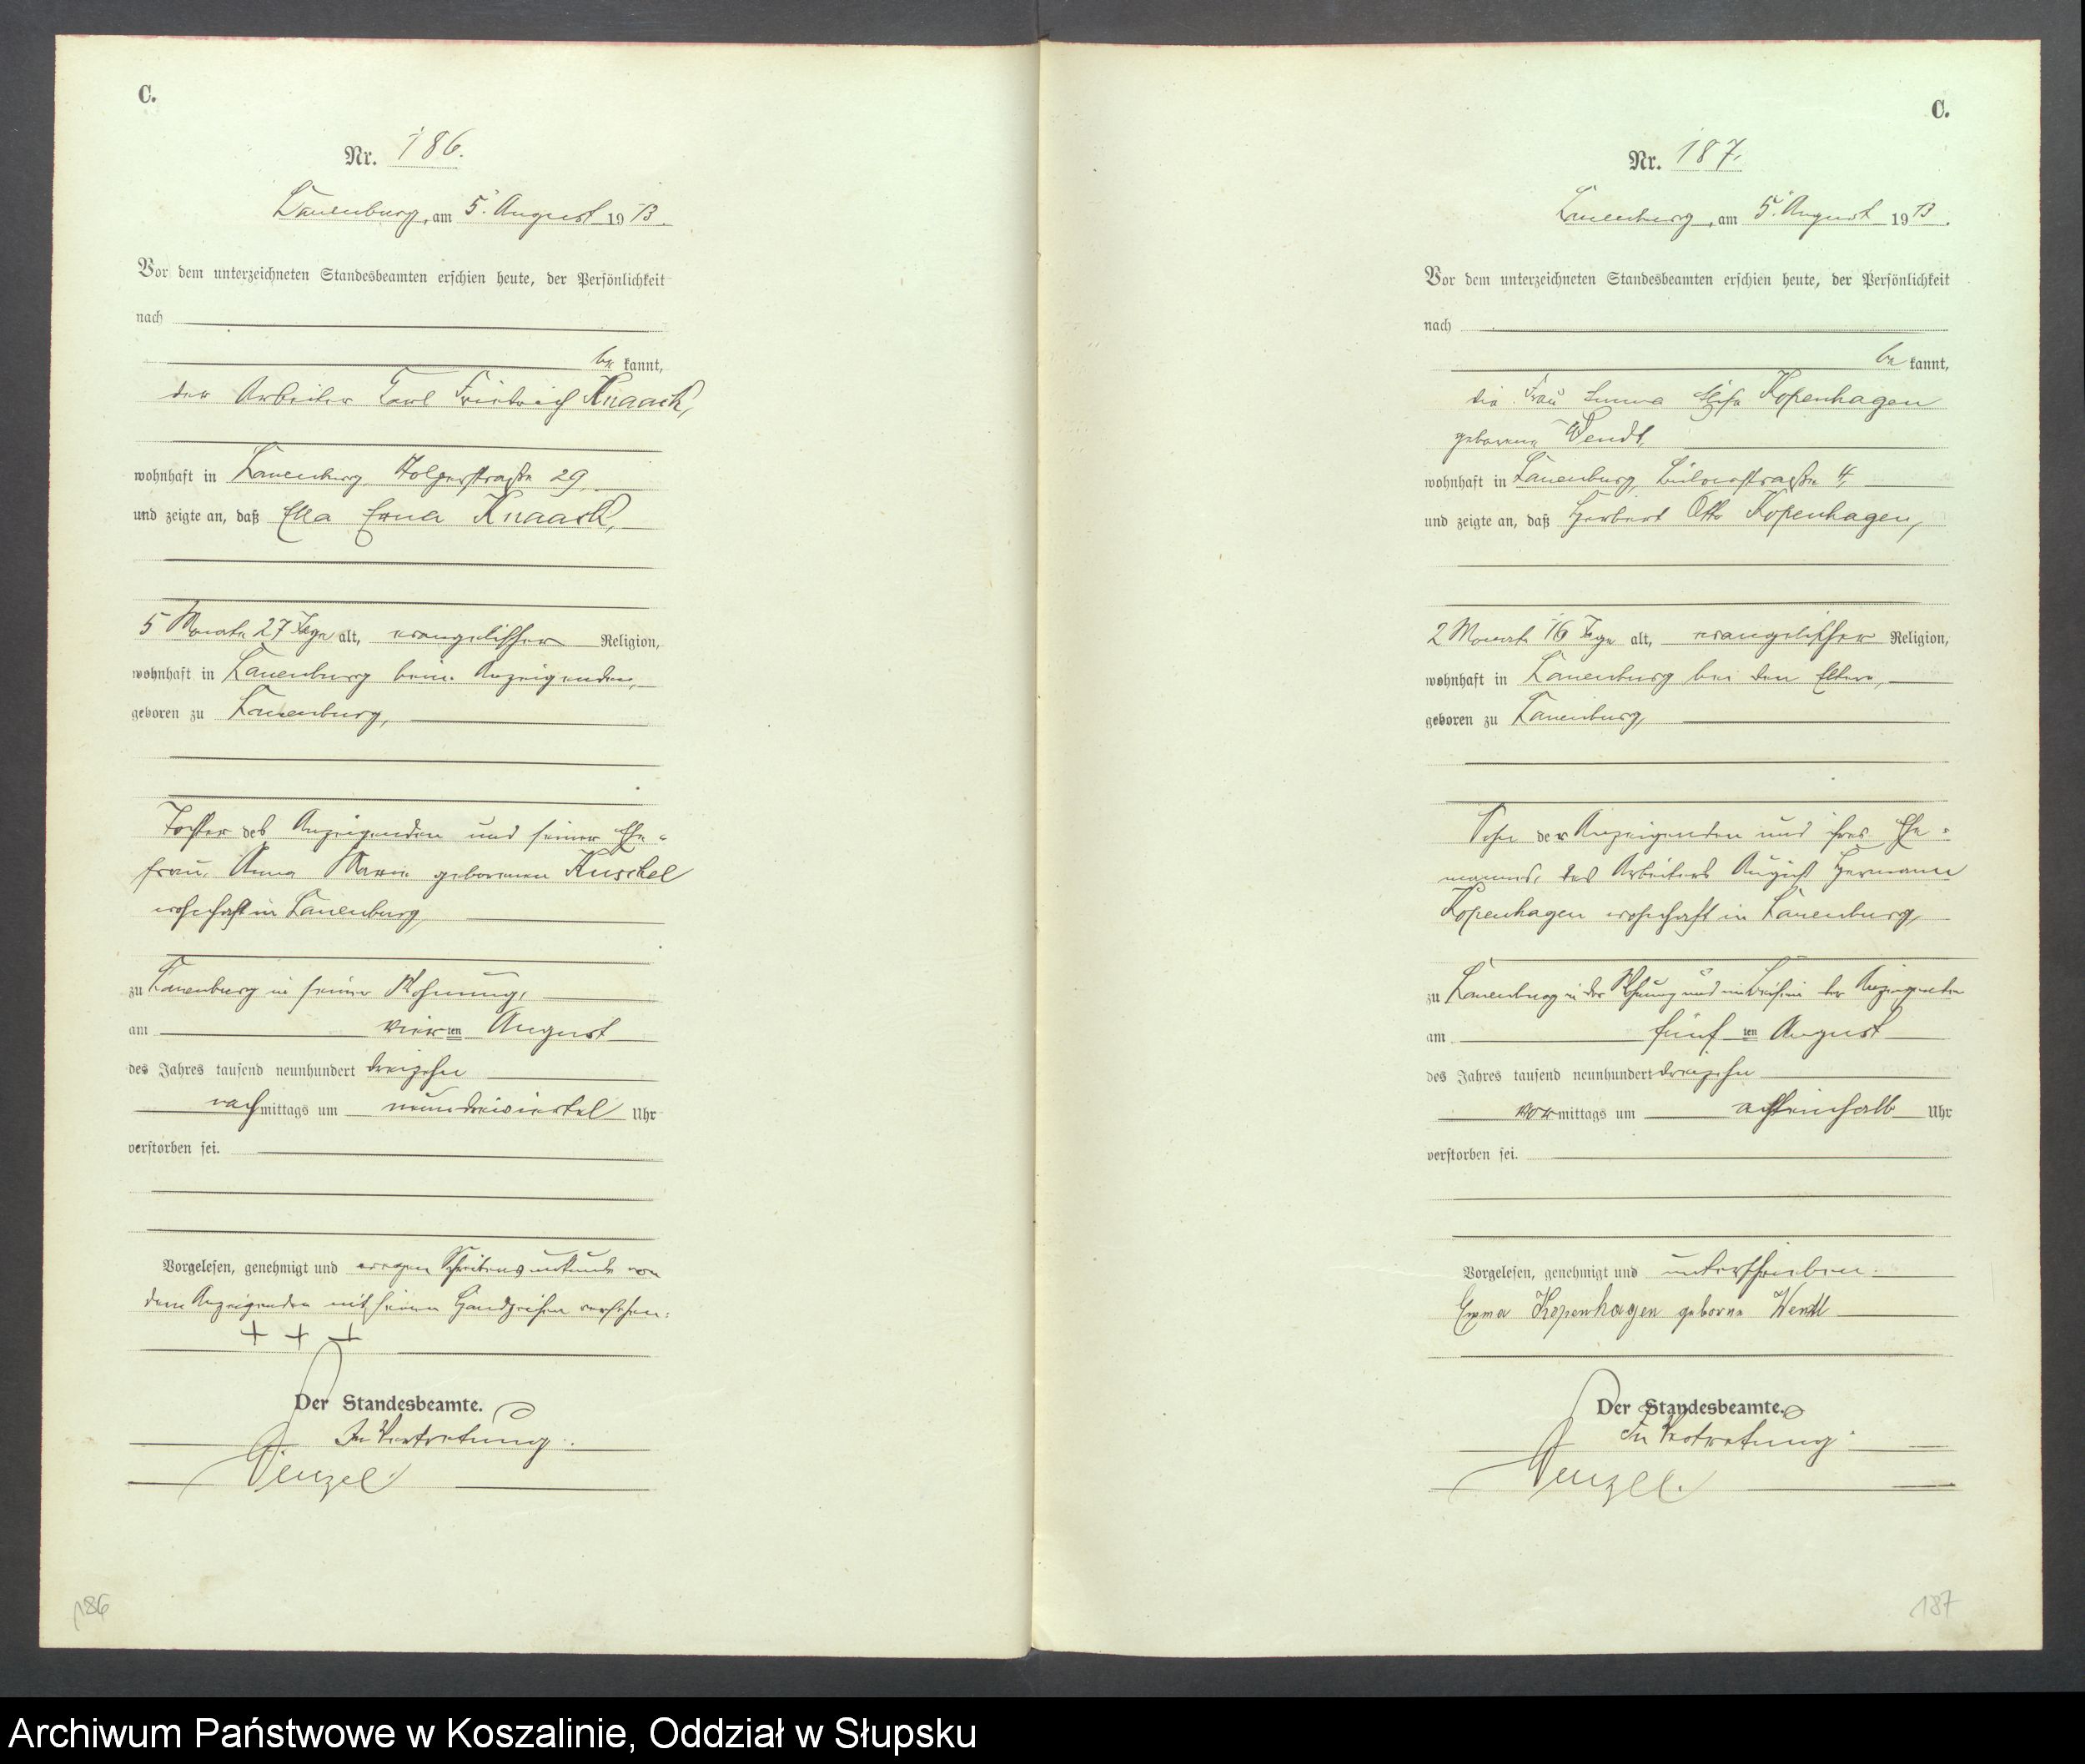 C.
Nr. 186.
Lauenburg, am 5. August 1913.
Vor dem unterzeichneten Standesbeamten erschien heute, der Persönlichkeit
nach
be kannt,
der Arbeiter Carl Friedrich Knaack,
wohnhaft in Lauenburg, Holzerstraße 29
und zeigte an, daß Ella Erna Knaack,
5 Monate 27 Tage alt, evangelischer Religion,
wohnhaft in Lauenburg beim Anzeigenden,
geboren zu Lauenburg,
Tochter des Anzeigenden und seiner Ehe-
frau, Anna Marie geborenen Kuschel
wohnhaft in Lauenburg,
zu Lauenburg in seiner Wohnung,
am vierten August
des Jahres tausend neunhundert dreizehn
nachmittags um neundreiviertel Uhr
verstorben sei.
Vorgelesen, genehmigt und wegen Schreibensunkunde von
dem Anzeigenden mit seinem Handzeichen versehen.
+ + +
Der Standesbeamte.
In Vertretung.
Wenzel
186
C.
Nr. 187.
Lauenburg, am 5. August 1913.
Vor dem unterzeichneten Standesbeamten erschien heute, der Persönlichkeit
nach
be kannt,
die Frau Emma Kopenhagen
geborene Wendt,
wohnhaft in Lauenburg, Bülowstraße 4,
und zeigte an, daß Herbert Otto Kopenhagen,
2 Monate 16 Tage alt, evangelischer Religion,
wohnhaft in Lauenburg bei den Eltern,
geboren zu Lauenburg,
Sohn der Anzeigenden und ihres Ehe-
mannes, des Arbeiters August Hermann
Kopenhagen wohnhaft in Lauenburg,
zu Lauenburg in der Wohnung und im Beisein der Anzeigenden
am fünften August
des Jahres tausend neunhundert dreizehn
vormittags um achteinhalb Uhr
verstorben sei.
Vorgelesen, genehmigt und unterschrieben.
Emma Kopenhagen geborne Wendt
Der Standesbeamte.
In Vertretung.
Wenzel.
187
Archiwum Państwowe w Koszalinie, Oddział w Słupsku